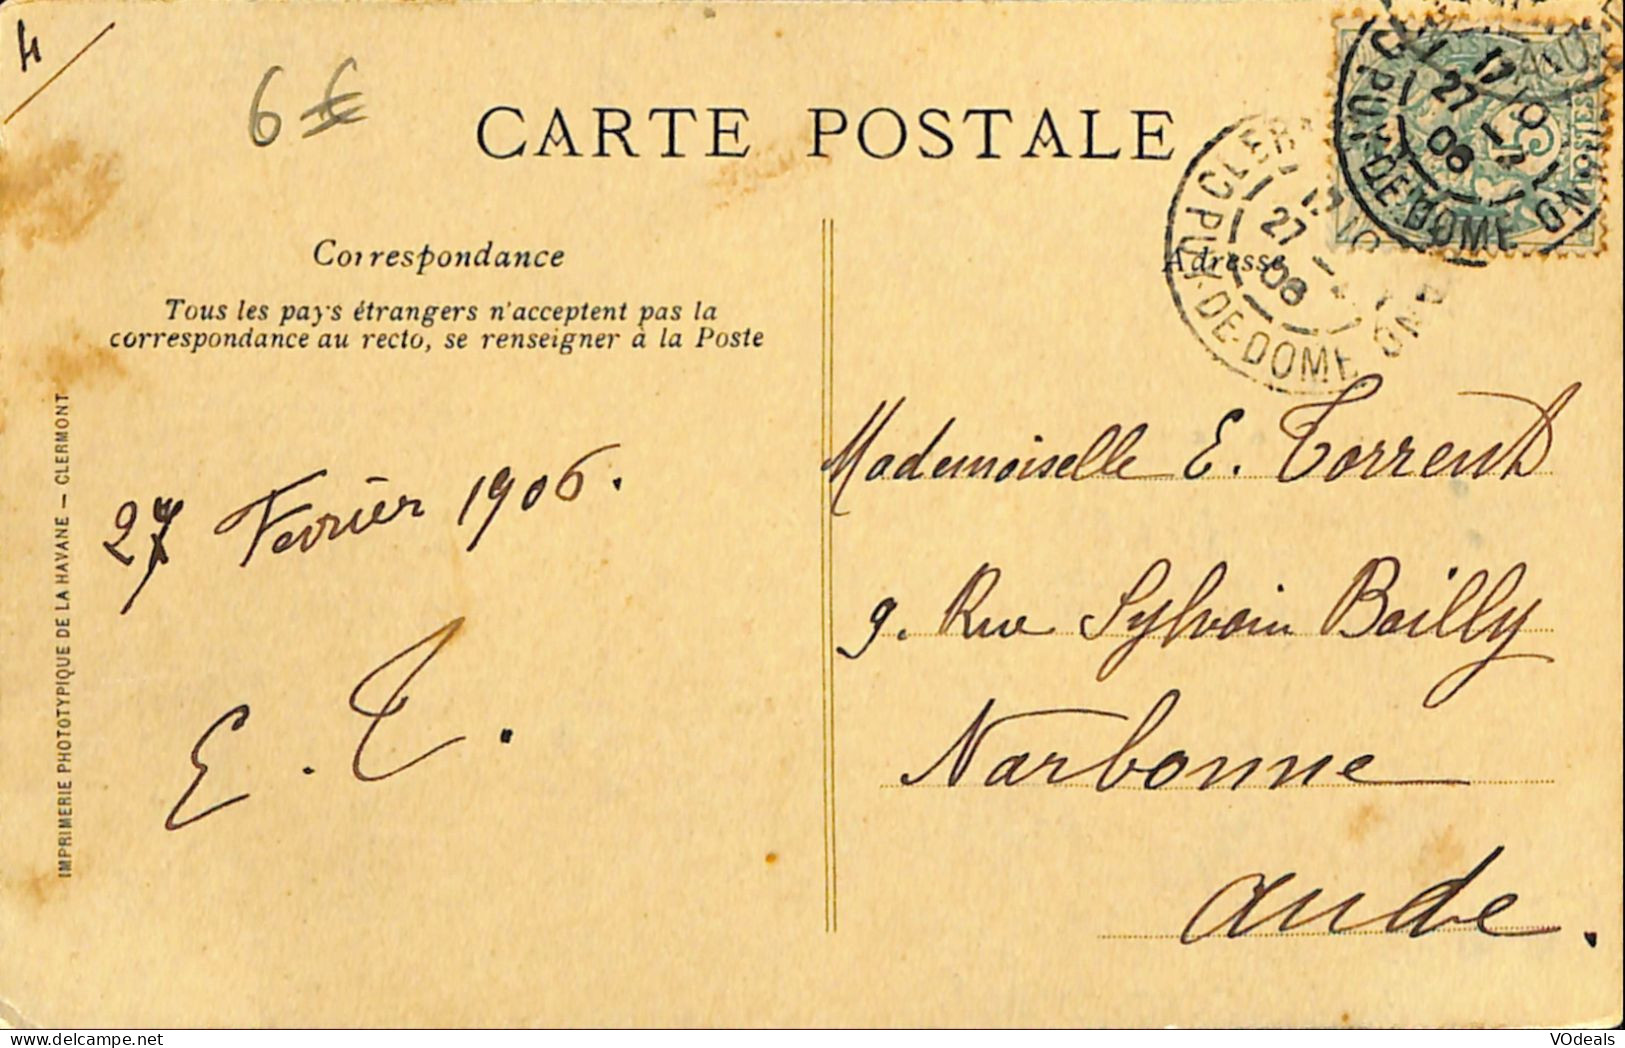 4
6€
CARTE POSTALE
Correspondance
Tous les pays étrangers n'acceptent pas la
correspondance au recto, se renseigner à la Poste
27 Février 1906.
E. T.
IMPRIMERIE PHOTOTYPIQUE DE LA HAVANE — CLERMONT
Adresse
Mademoiselle E. Torrent
9. Rue Sylvain Bailly
Narbonne
Aude.
PUY-DE-DOME
27
06
PUY-DE-DOME
27
06
5
VOdeals